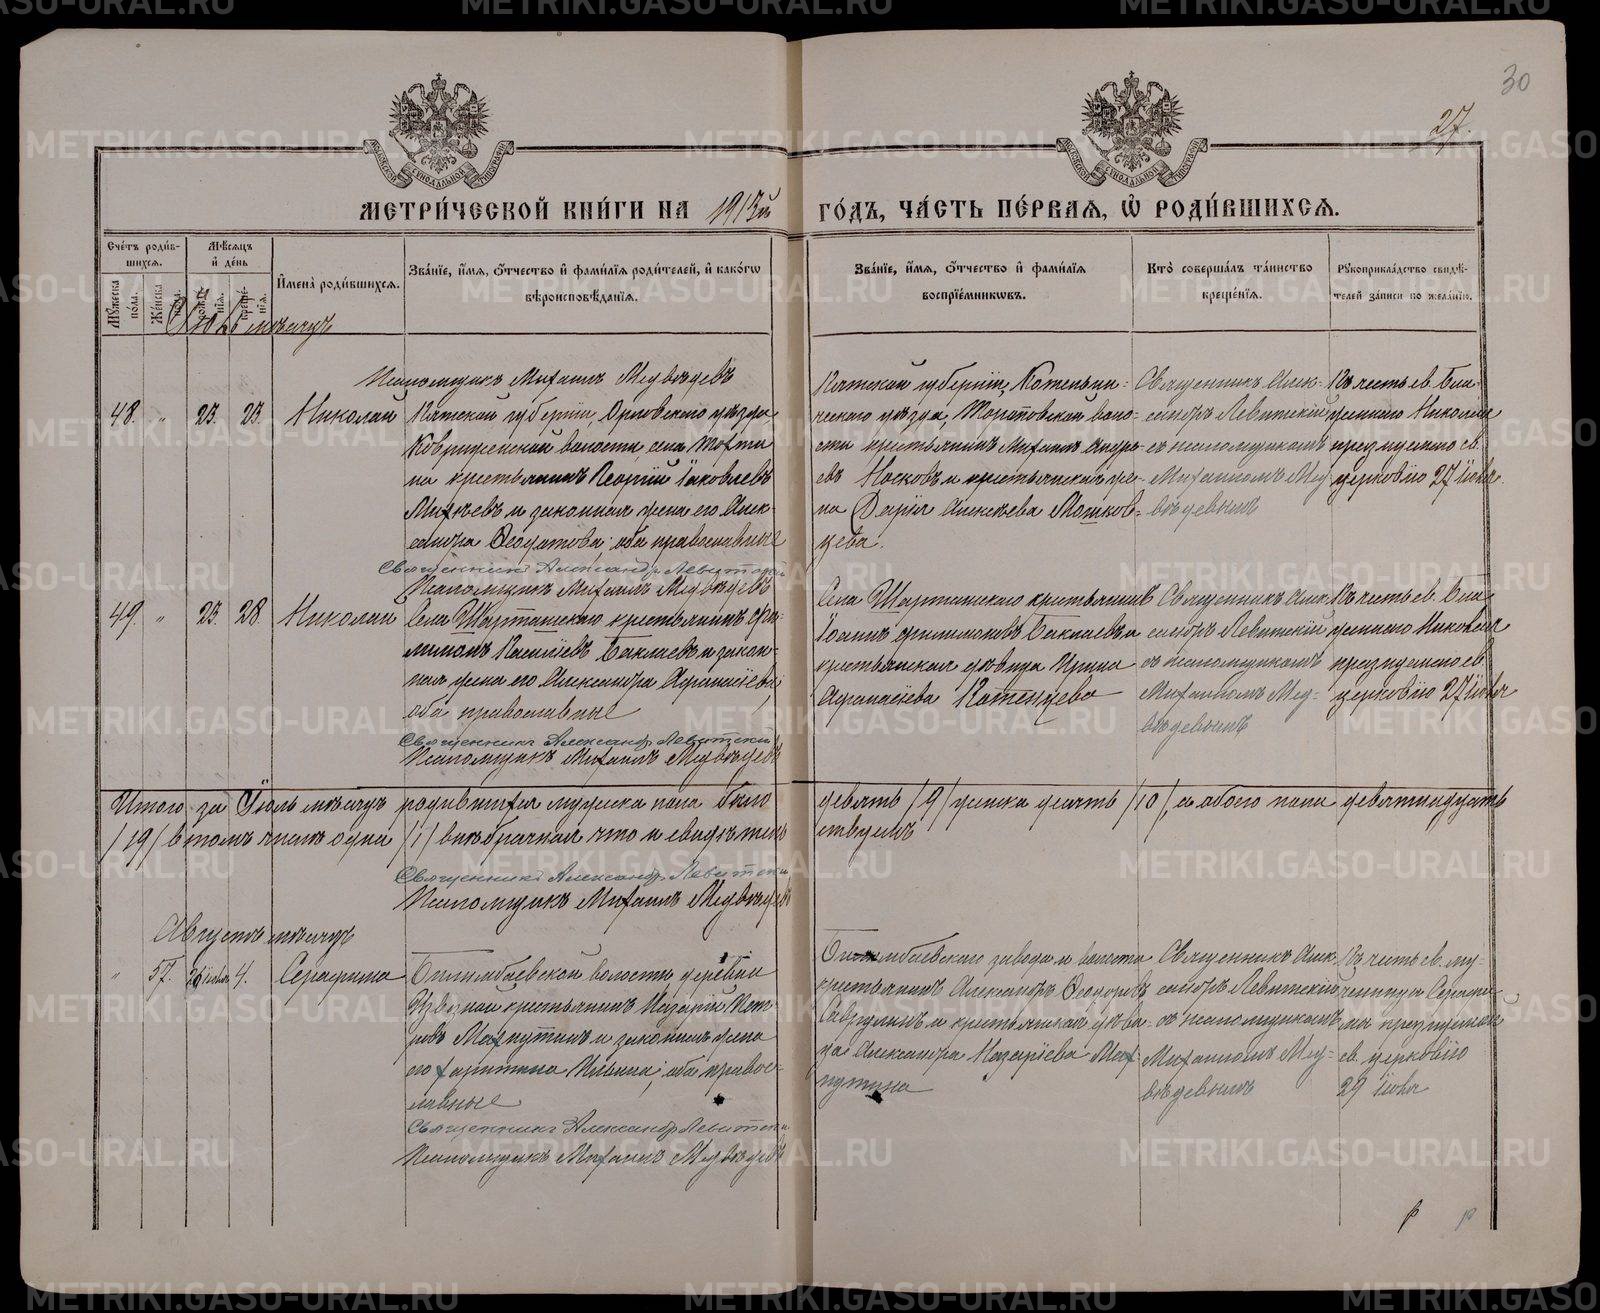 30
27.
МЕТРИ́ЧЕСКОЙ КНИ́ГИ НА 1913й ГО́ДЪ, ЧА́СТЬ ПЕ́РВАЯ, Ѡ РОДИ́ВШИХСЯ.
Сче́тъ роди́вшихся.
Му́жеска по́ла.
Же́нска по́ла.
Мѣ́сяцъ и де́нь
рожде́нія.
креще́нія.
Имена́ роди́вшихся.
Зва́ніе, и́мя, о́тчество и фами́лія роди́телей, и како́гѡ
вѣроисповѣ́данія.
Зва́ніе, и́мя, о́тчество и фами́лія
воспріе́мникѡвъ.
Кто̀ соверша́лъ та́инство
креще́нія.
Рукоприкла́дство свидѣ́-
телей за́писи по жела́нію.
Іюль мѣсяцъ
Псаломщикъ Михаилъ Медвѣдевъ
48. " 23. 25. Николай
Вятской губерніи, Орловскаго уѣзда,
волости, села
крестьянинъ Георгій Іаковлевъ
Михѣевъ и законная жена его Алек-
сандра Ѳеодотова; оба православные
Священникъ Александръ Левитскій
Псаломщикъ Михаилъ Медвѣдевъ
Вятской губерніи, Котельни-
ческаго уѣзда, воло-
сти крестьянинъ Михаилъ Андре-
евъ Носковъ и крестьянская же-
на Дарія Алексѣева Мошков-
цева.
Священникъ Алек-
сандръ Левитскій
съ псаломщикомъ
Михаиломъ Мед
вѣдевымъ
Въ честь св. Бла-
женнаго Николая
празднуемаго св.
церковію 27 Іюля
49. " 23. 28. Николай
Села Шарташскаго крестьянинъ Фи-
лимонъ Васильевъ Баклаевъ и закон-
ная жена его Александра Аѳанасіева;
оба православные
Священникъ Александръ Левитскій
Псаломщикъ Михаилъ Медвѣдевъ
Села Шарташскаго крестьянинъ
Іоаннъ Филимоновъ Баклаевъ и
крестьянская дѣвица Ирина
Аѳанасіева Котенцева
Священникъ Алек
сандръ Левитскій
съ псаломщикомъ
Михаиломъ Мед-
вѣдевымъ
Въ честь св. Бла-
женнаго Николая
празднуемаго св.
церковію 27 Іюля
Итого за Іюль мѣсяцъ родившихся мужска пола было девять /9/ женска десять /10/, а обоего пола девятнадцать
/19/ въ томъ числѣ одна /1/ внѣбрачная что и свидѣтель ствуемъ
Священникъ Александръ Левитскій
Псаломщикъ Михаилъ Медвѣдевъ
Августъ мѣсяцъ
" 51. 26 іюля 4. Серафима
Билимбаевской волости деревни
крестьянинъ Назарій
Махнутинъ и законная жена
его Харитина оба право-
славные
Священникъ Александръ Левитскій
Псаломщикъ Михаилъ Медвѣдевъ
Билимбаевскаго завода и волости
крестьянинъ Александръ Ѳеодоровъ
и крестьянская дѣви-
ца Александра Назаріева Мах-
нутина
Священникъ Алек
сандръ Левитскій
съ псаломщикомъ
Михаиломъ Мед-
вѣдевымъ
Въ честь св. му-
ченицы Серафи-
мы празднуемой
св. церковію
29 Іюля